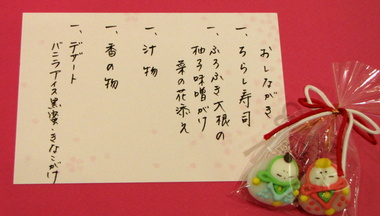 おしながき
一、ちらし寿司
一、ふろふき大根の
柚子味噌がけ
菜の花添え
一、汁物
一、香の物
一、デザート
バニラアイス黒蜜・きなこがけ